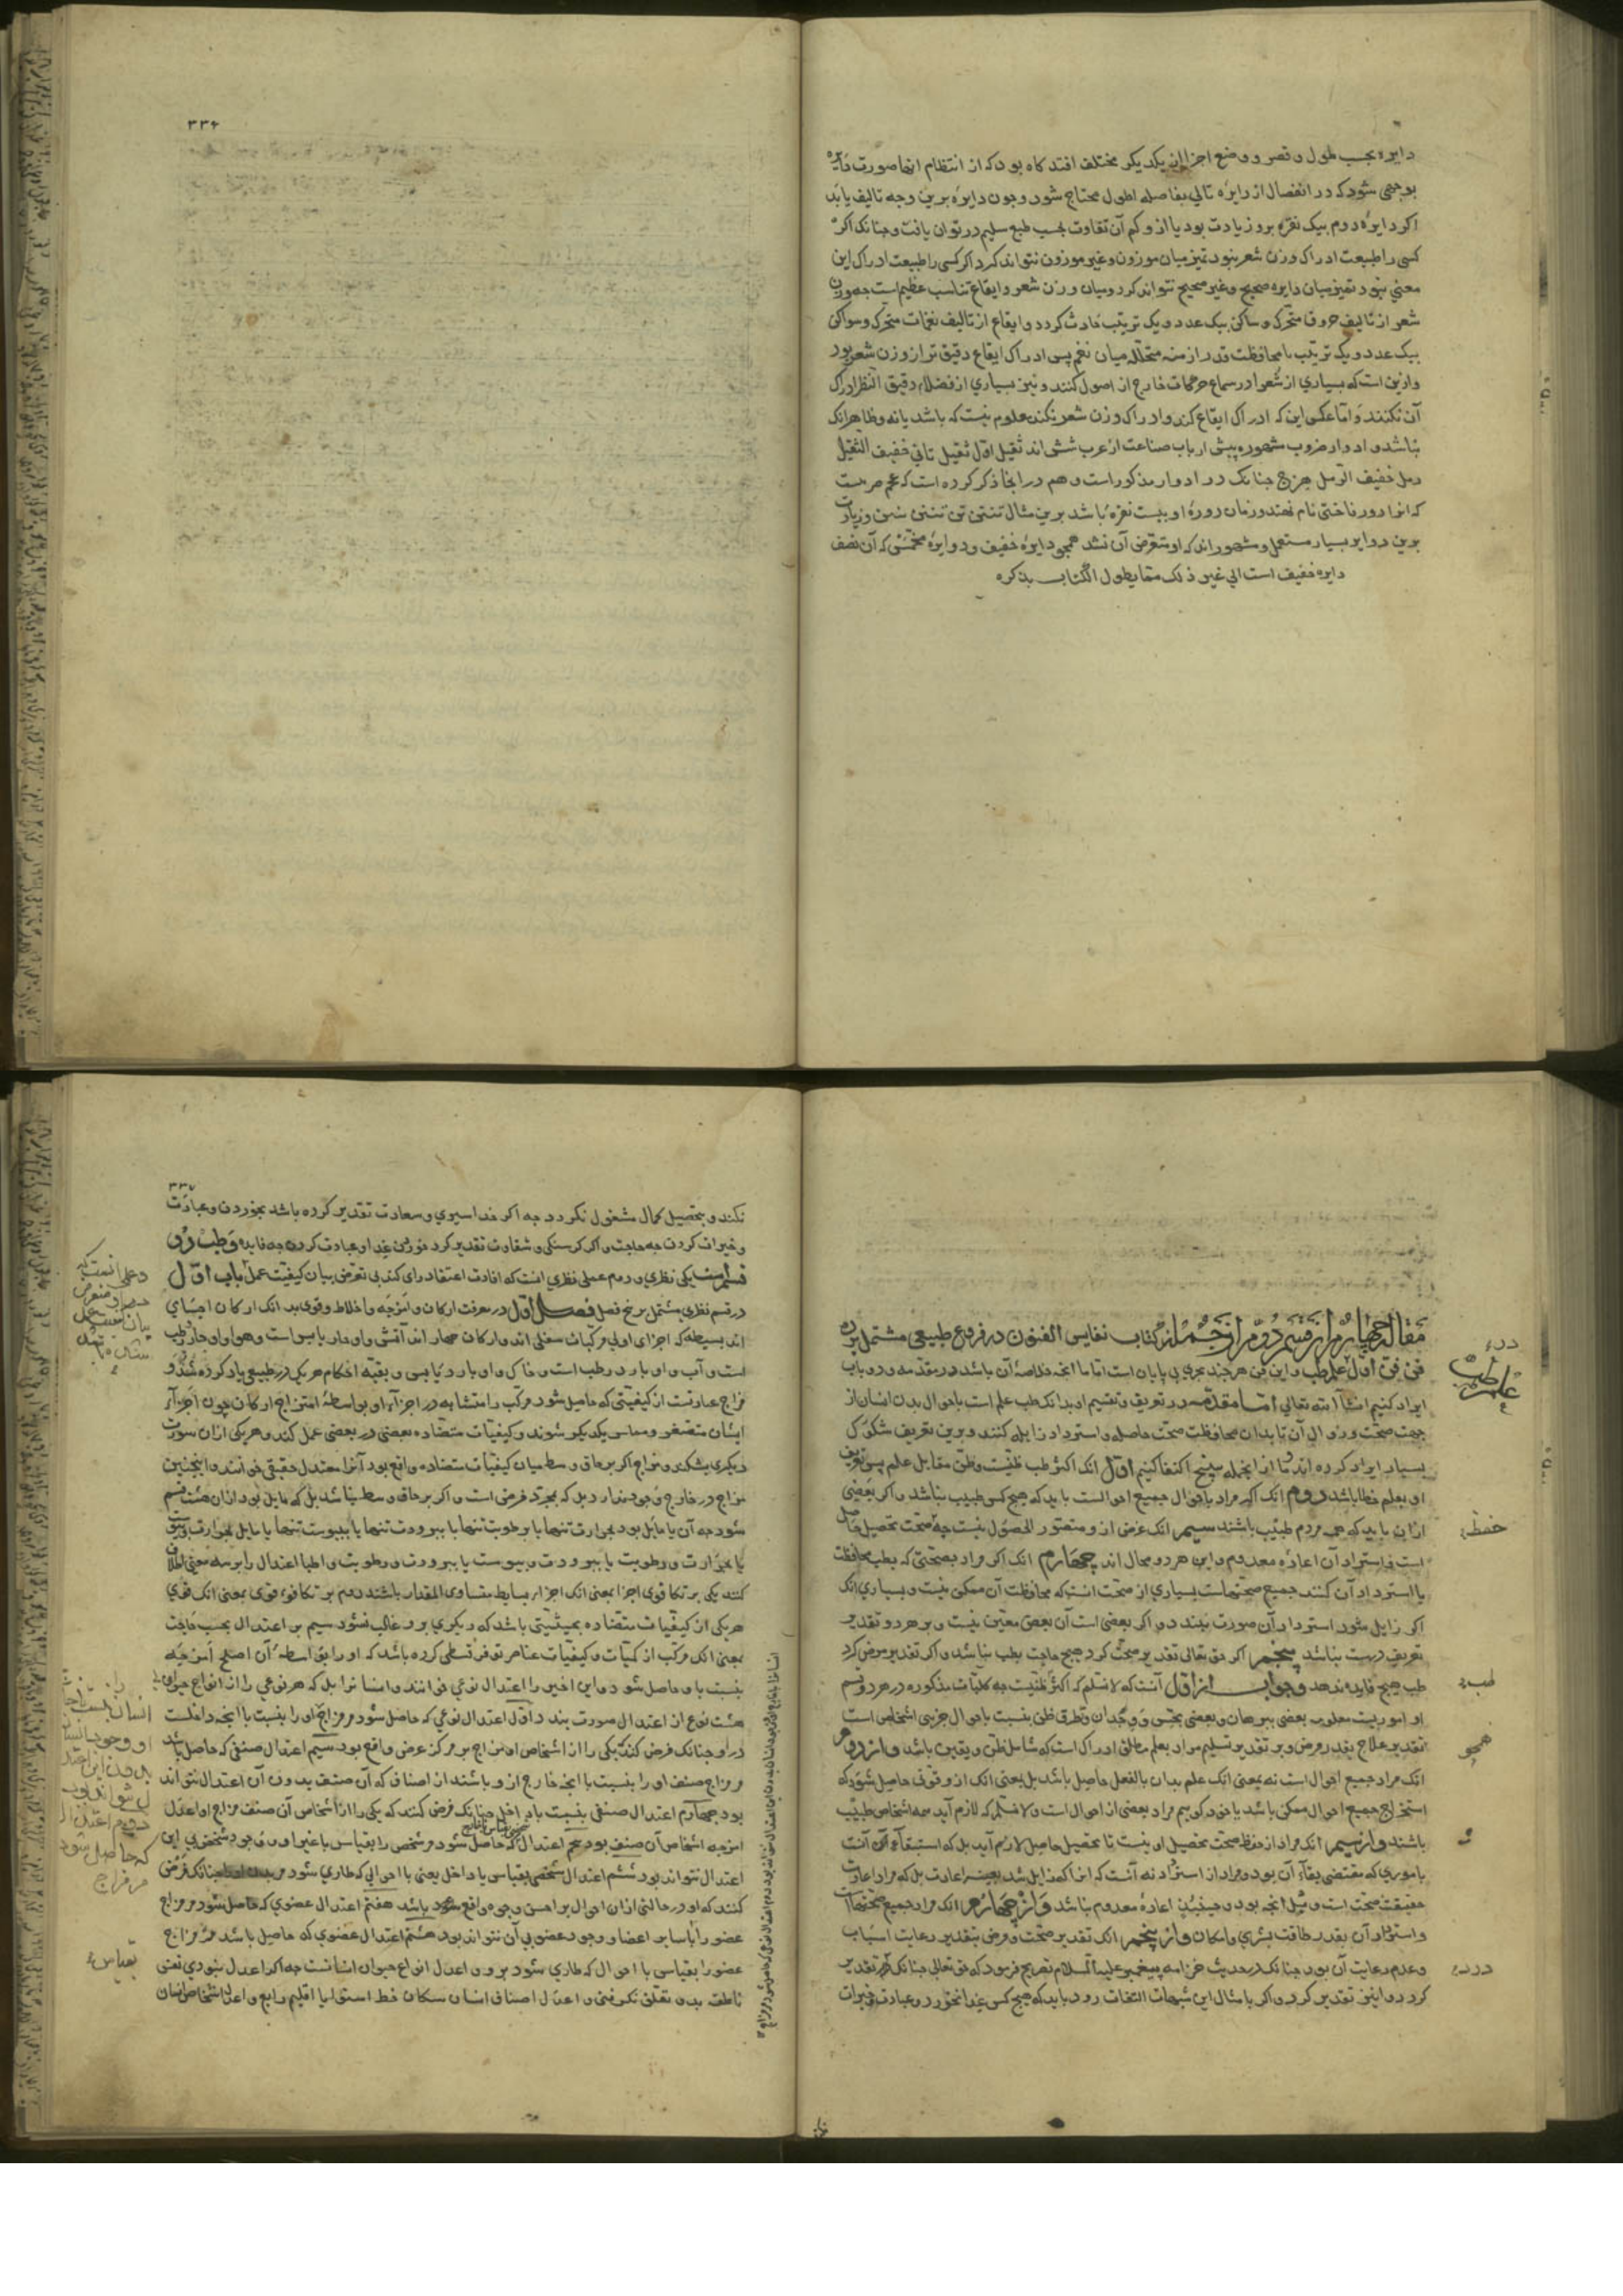 دایره بحسب طول و قصر و وضع اجزا از یکدیکر مختلف افتد کاه بود که از انتظام انها صورت دایره
بوجهی شود که در انفصال از دایره تالی بفاصله اطول محتاج شود و جون دایره برین وجه تالیف یابد
اکر دایره دوم بیک نقره برو زیادت بود یا ازو کم آن تفاوت بحسب طبع سلیم در توان یافت و جنانک اکر
کسی را طبیعت ادراک وزن شعر نبود تمیز میان موزون و غیر موزون نتواند کرد اکر کسی را طبیعت ادراک این
معنی نبود تمیز میان دایره صحیح و غیر صحیح نتواند کرد و میان وزن شعر و ایقاع تناسب عظیم است جه وزن
شعر از تالیف حروف متحرک و ساکن بیک عدد و یک ترتیب حادث کردد و ایقاع از تالیف نغمات متحرک و سواکن
بیک عدد و یک ترتیب با محافظت قدر ازمنه متخلله میان نغم پس ادراک ایقاع دقیق تر از وزن شعر بود
و ازین است که بسیاری از شعرا در سماع حرکات خارج از اصول کنند و نیز بسیاری از فضلاء دقیق النظر ادراک
آن نکنند و اما عکس این که ادراک ایقاع کند و ادراک وزن شعر نکند معلوم نیست که باشد یا نه و ظاهر انک
نباشد و ادوار ضروب مشهوره پیش ارباب صناعت از عرب شش اند ثقیل اول ثقیل ثانی خفیف الثقیل
رمل خفیف الرمل هزج جنانک در ادوار مذکور است و هم در انجا ذکر کرده است که عجم ضربیست
که انرا دور فاختی نام نهند و زمان دوره او بیست نقره باشد برین مثال تنتن تن تنتن
برین دوایر بسیار مستعمل و مشهور اند که او متعرض آن نشد همچو دایره خفیف و دوایره مخمس که آن نصف
دایره خفیف است الی غیر ذلک مما یطول الکتاب بذکره
۳۳۶
مقاله چهارم از قسم دوم از جمله کتاب نفایس الفنون در فروع طبیعی مشتمل بر ده
فن فن اول علم طب و این فن هر چند بحری بی پایان است اما ما انجه خلاصه آن باشد در مقدمه و دو باب
ایراد کنیم انشا الله تعالی اما مقدمه در تعریف و تقسیم او بدانک طب علم است باحوال بدن انسان از
جهت صحت و زوال آن تا بدان محافظت صحت حاصله و استرداد زایله کنند و برین تعریف شکوک
بسیار ایراد کرده اند و ما از انجمله بپنج اکتفا کنیم اول انک اکثر طب ظنیست و ظن مقابل علم پس تعریف
او بعلم خطا باشد دوم انک اکر مراد باحوال جمیع احوالست باید که هیچ کس طبیب نباشد و اکر بعضی
ازان باید که همه مردم طبیب باشند سیم انک غرض ازو متصور الحصول نیست جه صحت تحصیل حاصل
است و استرداد آن اعاده معدوم و این هر دو محال اند چهارم انک اکر مراد بصحتی که بطب محافظت
یا استرداد آن کنند جمیع صحتهاست بسیاری از صحت انست که محافظت آن ممکن نیست و بسیاری انک
اکر زایل شود استرداد آن صورت نبندد و اکر بعضی است آن بعض معین نیست و بر هر دو تقدیر
تعریف درست نباشد پنجم اکر حق تعالی تقدیر صحت کرد هیچ حاجت بطب نباشد و اکر تقدیر مرض کرد
طب هیچ فایده ندهد و جواب از اول آنست که لا نسلم که اکثر ظنیست جه کلیات مذکوره در هر دو قسم
او اموریست معلوم بعضی ببرهان و بعضی بحس و وجدان و تطرق ظن بنسبت باحوال جزیی اشخاص است
تقدیر علاج بقدر مرض و بر تقدیر تسلیم مراد بعلم مطلق ادراک است که شامل ظن و یقین باشد و از دوم
انک مراد جمیع احوال است نه بمعنی انک علم بدان بالفعل حاصل باشد بل بمعنی انک ازو قوتی حاصل شود که
استخراج جمیع احوال ممکن باشد یا خود کوییم مراد بعضی از احوال است و لا نسلم که لازم آید همه اشخاص طبیب
باشند و از سیم انک مراد از حفظ صحت تحصیل او نیست تا تحصیل حاصل لازم آید بل که استبقاء آن است
باموری که مقتضی بقاء آن بود و مراد از استرداد نه آنست که انرا که زایل شد بعینه اعادت بل که مراد اعادت
حقیقت صحت است و مثل انجه بود و حینیذ اعاده معدوم نباشد و از چهارم انک مراد جمیع صحتهاست
و استرداد آن بقدر طاقت بشری و امکان و از پنجم انک تقدیر صحت و مرض بتقدیر رعایت اسباب
و عدم رعایت آن بود جنانک در حدیث خزامه پیغمبر علیه السلام تصریح فرمود که حق تعالی جنانک تقدیر
کرد دوا نیز تقدیر کرد و اکر بامثال این شبهات التفات رود باید که هیچ کس غذا نخورد و عبادت و خیرات
علم طب
حفظ
طب
همچو
۳۳۷
نکند و بتحصیل کمال مشغول نکردد جه اکر خدا سیری و سعادت تقدیر کرده باشد بخوردن و عبادت
و خیرات کردن جه حاجت و اکر کرسنکی و شقاوت تقدیر کرد خوردن غذا و عبادت کردن جه فایده و طب دو
قسم است یکی نظری و دوم عملی نظری انست که افادت اعتقاد رای کند بی تعرض بیان کیفیت عمل باب اول
در قسم نظری مشتمل بر پنج فصل فصل اول در معرفت ارکان و امزجه و اخلاط و قوی بدانک ارکان اجسامی
اند بسیطه که اجزای اولی مرکبات سفلی اند و ارکان جهار اند آتش و او حار یابس است و هوا و او حار رطب
است و آب و او بارد رطب است و خاک و او بارد یابس و بقیه احکام هر یک در طبیعی یاد کرده شد و
مزاج عبارتست از کیفیتی که حاصل شود مرکب را متشابه در اجزآء او بواسطه امتزاج ارکان چون اجزآء
ایشان متصغر و مماس یکدیکر شوند و کیفیات متضاده بعضی در بعضی عمل کند و هر یکی ازان سورت
دیکری بشکند و مزاج اکر بر حاق وسط میان کیفیات متضاده واقع بود آنرا معتدل حقیقی خوانند و اینچنین
مزاج در خارج وجود ندارد بل که بمجرد فرض است و اکر بر حاق وسط نباشد بل که مایل بود ازان هشت قسم
شود جه آن یا مایل بود بحرارت تنها یا برطوبت تنها یا ببرودت تنها یا بیبوست تنها یا مایل بحرارت و یبوست
یا بحرارت و رطوبت یا ببرودت و یبوست یا ببرودت و رطوبت و اطبا اعتدال را بر سه معنی اطلاق
کنند یکی بر تکافوی اجزا بمعنی انک اجزاء بسایط متساوی المقدار باشند دوم بر تکافوء قوی بمعنی انک قوی
هر یکی از کیفیات متضاده بحیثیتی باشد که دیکری برو غالب نشود سیم بر اعتدال بحسب حاجت
بمعنی انک مرکب از کمیات و کیفیات عناصر توفر قسطی کرده باشد که او را بواسطه آن اصلح امزجه
بنسبت با و حاصل شود و این اخیر را اعتدال نوعی خوانند و انسان را بل که هر نوعی را از انواع حیوان
هشت نوع از اعتدال صورت بندد اول اعتدال نوعی که حاصل شود مر مزاج او را بنسبت با انجه داخلست
درو جنانک فرض کنند یکی را از اشخاص او مزاج بر مرکز عرض واقع بود سیم اعتدال صنفی که حاصل باشد
مر مزاج صنف او را بنسبت با انجه خارج ازو باشند از اصناف که آن صنف بدون آن اعتدال نتواند
بود جهارم اعتدال صنفی بنسبت با داخل جنانک فرض کنند که یکی را از اشخاص آن صنف مزاج او اعدل
امزجه اشخاص آن صنف بود پنجم اعتدال که حاصل شود مر شخص را بقیاس با غیر او و وجود شخص بی این
اعتدال نتواند بود ششم اعتدال شخصی بقیاس با داخل یعنی با احوالی که طاری شود جنانک فرض
کنند که او در حالتی ازان احوال بر احسن وجوه واقع باشد هفتم اعتدال عضوی که حاصل شود مر مزاج
عضو را با سایر اعضا و وجود عضو بی آن نتواند بود هشتم اعتدال عضوی که حاصل باشد مر مزاج
عضو را بقیاس با احوال که طاری شود برو و اعدل انواع حیوان انسانست جه اکر اعدل نبودی نفس
ناطقه بدو تعلق نکرفتی و اعدل اصناف انسان سکان خط استوا یا اقلیم رابع و اعدل اشخاص انسان
انسان
او وجود انسان
بدون این اعتدال
نتواند بود
دوم اعتدال
که حاصل شود
مر مزاج
بقیاس